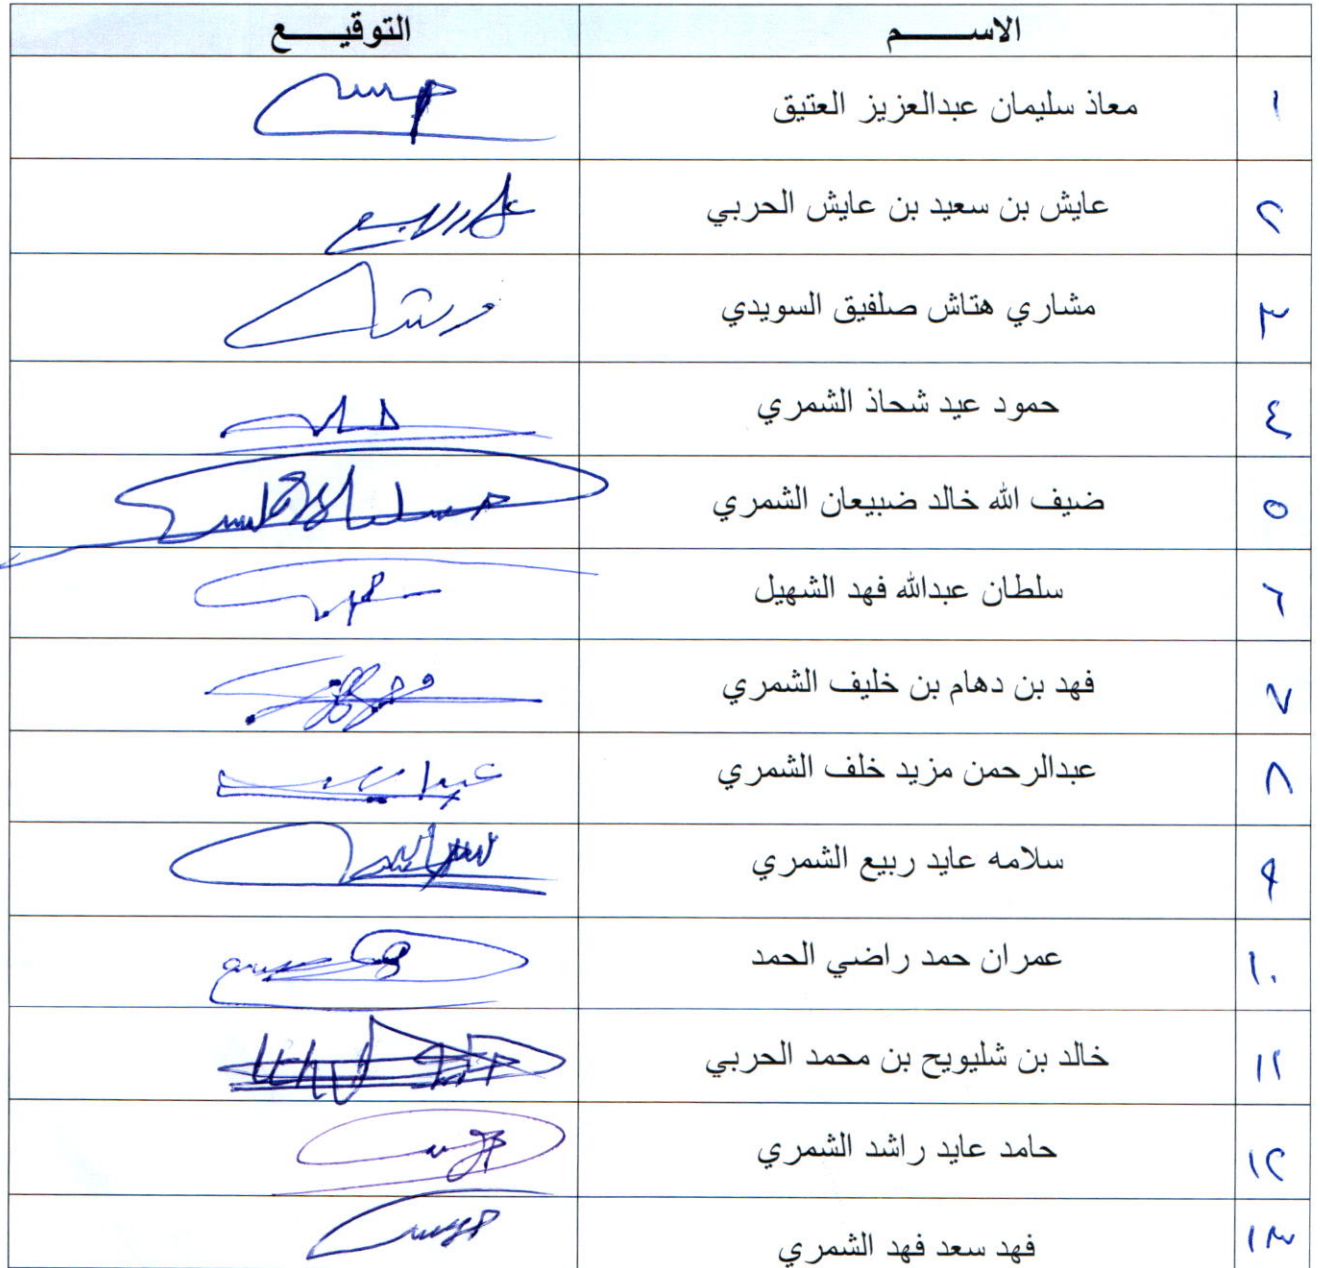 الاســـــم التوقيـــــع
١ معاذ سليمان عبدالعزيز العتيق
٢ عايش بن سعيد بن عايش الحربي
٣ مشاري هتاش صلفيق السويدي
٤ حمود عيد شحاذ الشمري
٥ ضيف الله خالد ضبيعان الشمري
٦ سلطان عبدالله فهد الشهيل
٧ فهد بن دهام بن خليف الشمري
٨ عبدالرحمن مزيد خلف الشمري
٩ سلامه عايد ربيع الشمري
١٠ عمران حمد راضي الحمد
١١ خالد بن شليويح بن محمد الحربي
١٢ حامد عايد راشد الشمري
١٣ فهد سعد فهد الشمري